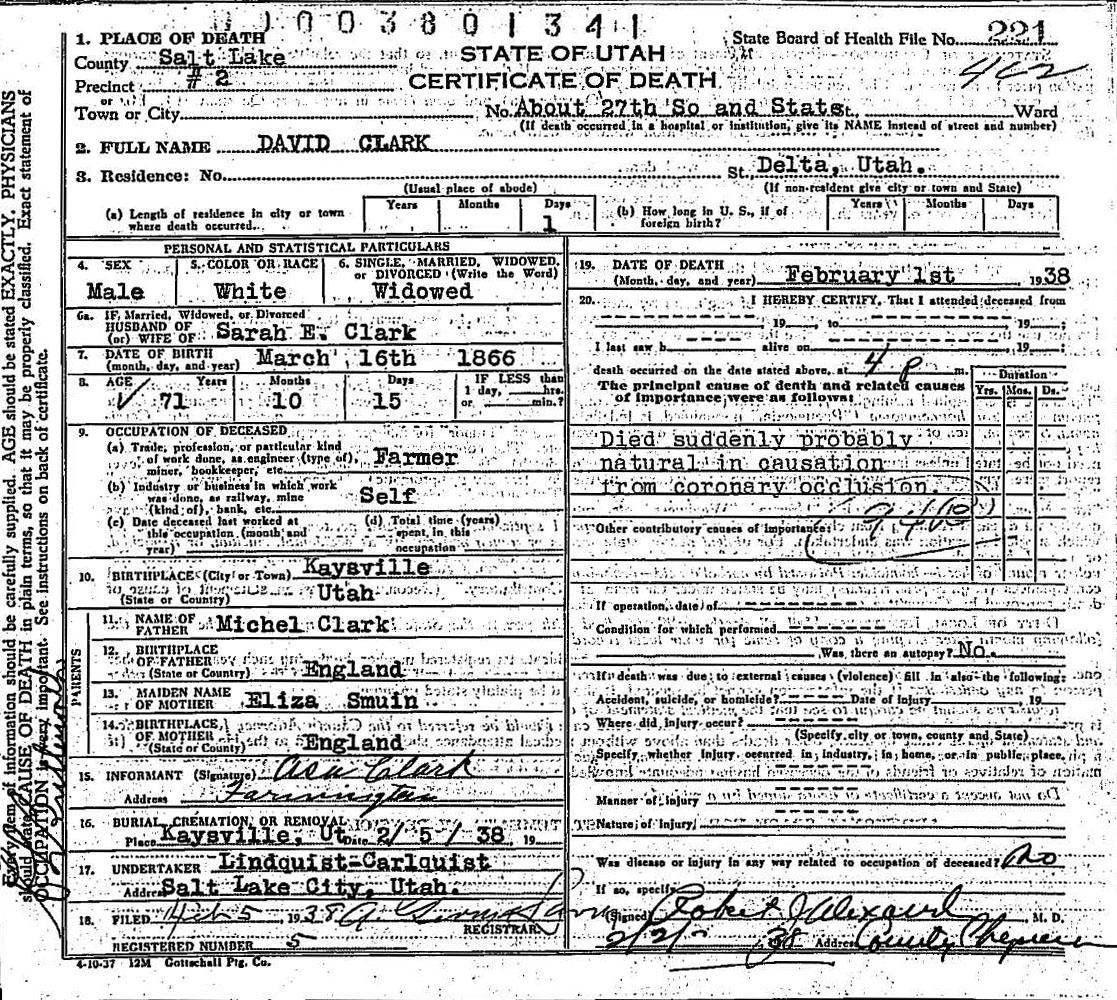 1003801341
1. PLACE OF DEATH
County Salt Lake
Precinct # 2
or
Town or City
STATE OF UTAH
CERTIFICATE OF DEATH
State Board of Health File No. 221
No. About 27th So and State St., Ward
(If death occurred in a hospital or institution, give its NAME instead of street and number)
2. FULL NAME DAVID CLARK
3. Residence: No. St., Delta, Utah.
(Usual place of abode) (If non-resident give city or town and State)
(a) Length of residence in city or town where death occurred. Years Months Days 1
(b) How long in U. S., if of foreign birth? Years Months Days
PERSONAL AND STATISTICAL PARTICULARS
4. SEX Male
5. COLOR OR RACE White
6. SINGLE, MARRIED, WIDOWED, or DIVORCED (Write the Word) Widowed
6a. IF, Married, Widowed, or Divorced
HUSBAND OF
(or) WIFE OF Sarah E. Clark
7. DATE OF BIRTH
(month, day, and year) March 16th 1866
8. AGE Years Months Days IF LESS than
1 day, hrs.
or min.?
71 10 15
9. OCCUPATION OF DECEASED
(a) Trade, profession, or particular kind
of work done, as engineer (type of),
miner, bookkeeper, etc. Farmer
(b) Industry or business in which work
was done, as railway, mine
(kind of), bank, etc. Self
(c) Date deceased last worked at
this occupation (month and
year)
(d) Total time (years)
spent in this
occupation
10. BIRTHPLACE (City or Town) Kaysville
(State or Country) Utah
PARENTS
11. NAME OF
FATHER Michel Clark
12. BIRTHPLACE
OF FATHER
(State or Country) England
13. MAIDEN NAME
OF MOTHER Eliza Smuin
14. BIRTHPLACE
OF MOTHER
(State or Country) England
15. INFORMANT (Signature) Asa Clark
Address Farmington
16. BURIAL, CREMATION, OR REMOVAL
Place Kaysville, Ut Date 2/ 5 / 38, 19
17. UNDERTAKER Lindquist-Carlquist
Address Salt Lake City, Utah.
18. FILED Feb 5, 1938
REGISTRAR
REGISTERED NUMBER 5
4-10-37 12M Gottschall Ptg. Co.
19. DATE OF DEATH
(Month, day, and year) February 1st 1938
20. I HEREBY CERTIFY, That I attended deceased from
19 , to 19 ;
I last saw h alive on 19 ;
death occurred on the date stated above, at 4 p m.
The principal cause of death and related causes
of importance were as follows:
Duration
Yrs. Mos. Ds.
Died suddenly probably
natural in causation
from coronary occlusion.
Other contributory causes of importance:
If operation, date of
Condition for which performed
Was there an autopsy? No.
If death was due to external causes (violence) fill in also the following:
Accident, suicide, or homicide? Date of Injury 19
Where did injury occur?
(Specify city or town, county and State)
Specify whether injury occurred in industry, in home, or in public place,
Manner of injury
Nature of injury
Was disease or injury in any way related to occupation of deceased? No
If so, specify
(Signed) Robert J Alexander M. D.
2/2/ 38 Address County
Every item of information should be carefully supplied. AGE should be stated EXACTLY. PHYSICIANS
should state CAUSE OF DEATH in plain terms, so that it may be properly classified. Exact statement of
OCCUPATION is very important. See instructions on back of certificate.